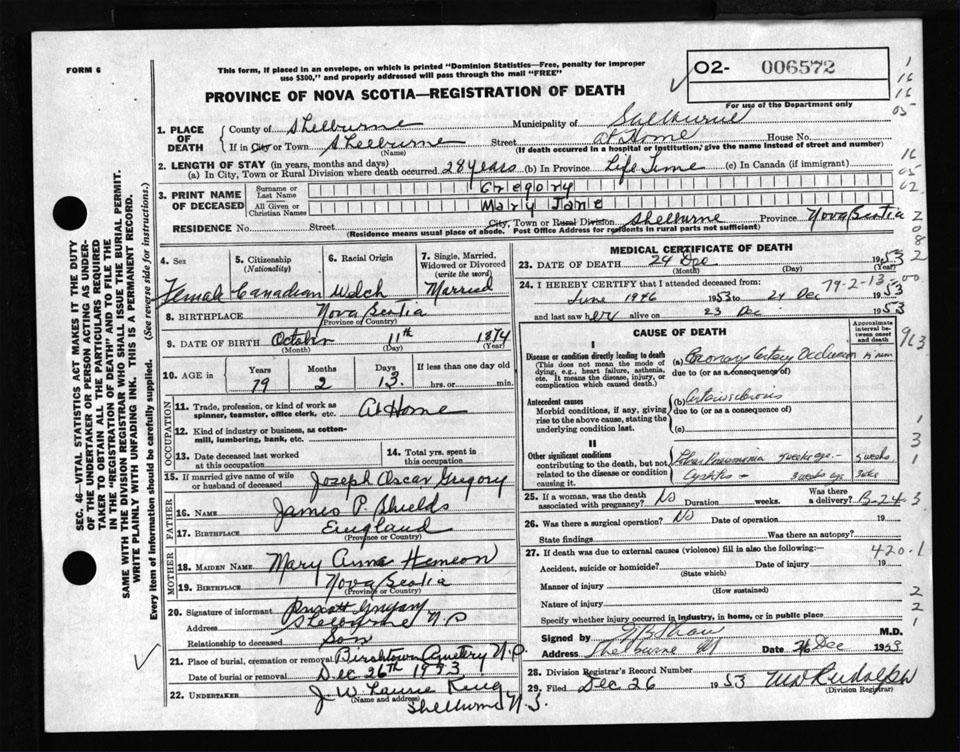 FORM 6
This form, if placed in an envelope, on which is printed "Dominion Statistics—Free, penalty for improper
use $300," and properly addressed will pass through the mail "FREE"
O2- 006572
For use of the Department only
PROVINCE OF NOVA SCOTIA—REGISTRATION OF DEATH
1. PLACE OF DEATH
County of Shelburne Municipality of Shelburne
If in City or Town Shelburne Street At Home House No.
(Name) (If death occurred in a hospital or institution, give the name instead of street and number)
2. LENGTH OF STAY (in years, months and days)
(a) In City, Town or Rural Division where death occurred 28 years (b) In Province Life Time (c) In Canada (if immigrant)
3. PRINT NAME OF DECEASED
Surname or Last Name Gregory
All Given or Christian Names Mary Jane
RESIDENCE No. Street City, Town or Rural Division Shelburne Province Nova Scotia
(Residence means usual place of abode. Post Office Address for residents in rural parts not sufficient)
4. Sex 5. Citizenship (Nationality) 6. Racial Origin 7. Single, Married, Widowed or Divorced (write the word)
Female Canadian Welch Married
8. BIRTHPLACE Nova Scotia
(Province or Country)
9. DATE OF BIRTH October 11th 1874
(Month) (Day) (Year)
10. AGE in Years Months Days If less than one day old
79 2 13 hrs. or min.
OCCUPATION
11. Trade, profession, or kind of work as spinner, teamster, office clerk, etc. At Home
12. Kind of industry or business, as cotton-mill, lumbering, bank, etc.
13. Date deceased last worked at this occupation 14. Total yrs. spent in this occupation
15. If married give name of wife or husband of deceased Joseph Oscar Gregory
FATHER
16. NAME James P. Shields
17. BIRTHPLACE England
(Province or Country)
MOTHER
18. MAIDEN NAME Mary Anna Hemeon
19. BIRTHPLACE Nova Scotia
(Province or Country)
20. Signature of informant Gregory
Address Shelburne N.S
Relationship to deceased Son
21. Place of burial, cremation or removal Birchtown Cemetery N.S.
Date of burial or removal Dec 26th 1953
22. UNDERTAKER J. W. Laurie King
(Name and address)
Shelburne N.S.
MEDICAL CERTIFICATE OF DEATH
23. DATE OF DEATH 24 Dec 1953
(Month) (Day) (Year)
24. I HEREBY CERTIFY that I attended deceased from: 79-2-13
June 1946 1953 to 24 Dec 1953
and last saw her alive on 23 Dec 1953
CAUSE OF DEATH
Approximate interval between onset and death
I
Disease or condition directly leading to death
(This does not mean the mode of dying, e.g., heart failure, asthenia, etc. It means the disease, injury, or complication which caused death.)
(a) Coronary Artery Occlusion
due to (or as a consequence of)
Antecedent causes
Morbid conditions, if any, giving rise to the above cause, stating the underlying condition last.
(b) Arteriosclerosis
due to (or as a consequence of)
(c)
II
Other significant conditions
contributing to the death, but not related to the disease or condition causing it.
Lobar Pneumonia 5 weeks ago 5 weeks
Cystitis 3 weeks ago 3 wks
25. If a woman, was the death associated with pregnancy? No Duration weeks. Was there a delivery? B-24-3
26. Was there a surgical operation? No Date of operation 19
State findings Was there an autopsy?
27. If death was due to external causes (violence) fill in also the following:— 420.1
Accident, suicide or homicide? Date of injury 19
(State which)
Manner of injury
(How sustained)
Nature of injury
Specify whether injury occurred in industry, in home, or in public place
Signed by Shaw M.D.
Address Shelburne NS Date 26 Dec 1953
28. Division Registrar's Record Number
29. Filed Dec 26 1953 Rudolph
(Division Registrar)
SEC. 46—VITAL STATISTICS ACT MAKES IT THE DUTY
OF THE UNDERTAKER OR PERSON ACTING AS UNDER-
TAKER TO OBTAIN ALL THE PARTICULARS REQUIRED
IN THE "REGISTRATION OF DEATH" AND TO FILE THE
SAME WITH THE DIVISION REGISTRAR WHO SHALL ISSUE THE BURIAL PERMIT.
WRITE PLAINLY WITH UNFADING INK. THIS IS A PERMANENT RECORD.
Every item of information should be carefully supplied. (See reverse side for instructions.)
1
16
16
05
16
05
02
2
0
8
2
00
963
1
3
1
3
1
2
2